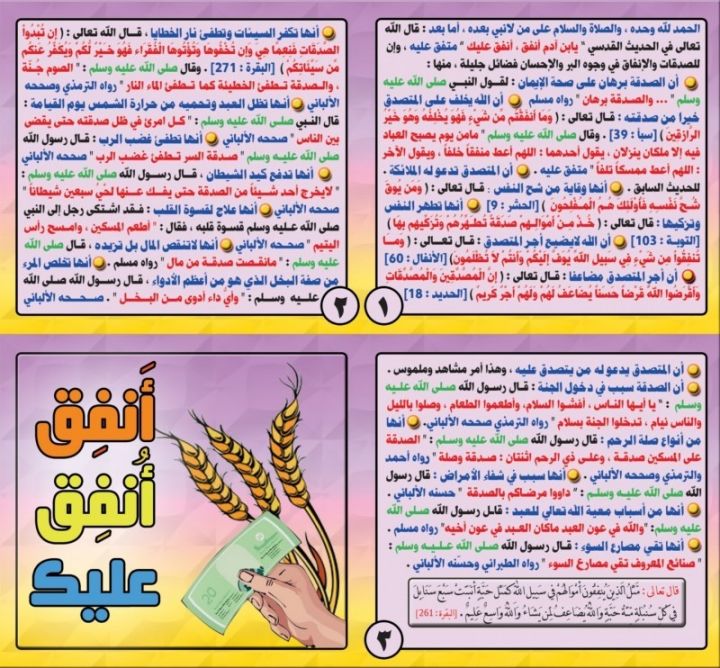 الحمد لله وحده ، والصلاة والسلام على من لانبي بعده ، أما بعد : قال الله
تعالى في الحديث القدسي " يابن آدم أنفق ، أنفق عليك " متفق عليه ، وإن
للصدقات والإنفاق في وجوه البر والإحسان فضائل جليلة ، منها :
أن الصدقة برهان على صحة الإيمان : لقول النبي صلى الله عليه
وسلم " ... والصدقة برهان " رواه مسلم أن الله يخلف على المتصدق
خيرا من صدقته : قال تعالى : ( وَمَا أَنفَقْتُم مِّن شَيْءٍ فَهُوَ يُخْلِفُهُ وَهُوَ خَيْرُ
الرَّازِقِينَ ) [سبأ : 39] . وقال صلى الله عليه وسلم " مامن يوم يصبح العباد
فيه إلا ملكان ينزلان ، يقول أحدهما : اللهم أعط منفقاً خلفاً ، ويقول الآخر
: اللهم أعط ممسكاً تلفاً " متفق عليه . أن المتصدق تدعو له الملائكة .
للحديث السابق . أنها وقاية من شح النفس : قال تعالى : ( وَمَن يُوقَ
شُحَّ نَفْسِهِ فَأُوْلَئِكَ هُمُ الْمُفْلِحُونَ ) [الحشر : 9] أنها تطهر النفس
وتزكيها : قال تعالى : ( خُذْ مِنْ أَمْوَالِهِمْ صَدَقَةً تُطَهِّرُهُمْ وَتُزَكِّيهِم بِهَا )
[التوبة : 103] أن الله لايضيع أجر المتصدق : قال تعالى : ( وَمَا
تُنفِقُواْ مِن شَيْءٍ فِي سَبِيلِ اللّهِ يُوَفَّ إِلَيْكُمْ وَأَنتُمْ لاَ تُظْلَمُونَ) [الأنفال : 60]
أن أجر المتصدق مضاعفا : قال تعالى : ( إِنَّ الْمُصَّدِّقِينَ وَالْمُصَّدِّقَاتِ
وَأَقْرَضُوا اللَّهَ قَرْضاً حَسَناً يُضَاعَفُ لَهُمْ وَلَهُمْ أَجْرٌ كَرِيمٌ ) [الحديد : 18]
١
أنها تكفر السيئات وتطفئ نار الخطايا ، قال الله تعالى : ( إِن تُبْدُواْ
الصَّدَقَاتِ فَنِعِمَّا هِيَ وَإِن تُخْفُوهَا وَتُؤْتُوهَا الْفُقَرَاء فَهُوَ خَيْرٌ لُّكُمْ وَيُكَفِّرُ عَنكُم
مِّن سَيِّئَاتِكُمْ ) [البقرة : 271] . وقال صلى الله عليه وسلم : " الصوم جُنَّة
، والصدقة تطفئ الخطيئة كما تطفئ الماء النار " رواه الترمذي وصححه
الألباني أنها تظل العبد وتحميه من حرارة الشمس يوم القيامة :
قال النبي صلى الله عليه وسلم : " كل امرئ في ظل صدقته حتى يقضى
بين الناس " صححه الألباني أنها تطفئ غضب الرب : قال رسول الله
صلى الله عليه وسلم " صدقة السر تطفئ غضب الرب " صححه الألباني
أنها تدفع كيد الشيطان ، قال رسول الله صلى الله عليه وسلم :
" لايخرج أحد شيئاً من الصدقة حتى يفك عنها لحيي سبعين شيطاناً "
صححه الألباني أنها علاج لقسوة القلب : فقد اشتكى رجل إلى النبي
صلى الله عليه وسلم قسوة قلبه ، فقال : " أطعم المسكين ، وامسح رأس
اليتيم " صححه الألباني أنها لاتنقص المال بل تزيده ، قال صلى الله
عليه وسلم : " مانقصت صدقة من مال " رواه مسلم . أنها تخلص المرء
من صفة البخل الذي هو من أعظم الأدواء ، قال رسول الله صلى الله
عليه وسلم : " وأيُّ داء أدوى من البخل " . صححه الألباني
٢
أن المتصدق يدعو له من يتصدق عليه ، وهذا أمر مشاهد وملموس .
أن الصدقة سبب في دخول الجنة : قال رسول الله صلى الله عليه
وسلم : " يا أيها الناس ، أفشوا السلام، وأطعموا الطعام ، وصلوا بالليل
والناس نيام ، تدخلوا الجنة بسلام " رواه الترمذي وصححه الألباني. أنها
من أنواع صلة الرحم : قال رسول الله صلى الله عليه وسلم : " الصدقة
على المسكين صدقة ، وعلى ذي الرحم اثنتان : صدقة وصلة " رواه أحمد
والترمذي وصححه الألباني . أنها سبب في شفاء الأمراض : قال رسول
الله صلى الله عليه وسلم : " داووا مرضاكم بالصدقة " حسنه الألباني .
أنها من أسباب معية الله تعالى للعبد : قال رسول الله صلى الله
عليه وسلم: "والله في عون العبد ماكان العبد في عون أخيه" رواه مسلم .
أنها تقي مصارع السوء : قال رسول الله صلى الله عليه وسلم :
" صنائع المعروف تقي مصارع السوء " رواه الطبراني وحسنه الألباني .
قال تعالى : مَّثَلُ الَّذِينَ يُنفِقُونَ أَمْوَالَهُمْ فِي سَبِيلِ اللَّهِ كَمَثَلِ حَبَّةٍ أَنبَتَتْ سَبْعَ سَنَابِلَ
فِي كُلِّ سُنبُلَةٍ مِّئَةُ حَبَّةٍ وَاللَّهُ يُضَاعِفُ لِمَن يَشَاءُ وَاللَّهُ وَاسِعٌ عَلِيمٌ . [البقرة: 261]
٣
أَنفِق
أُنفِق
عليك
20